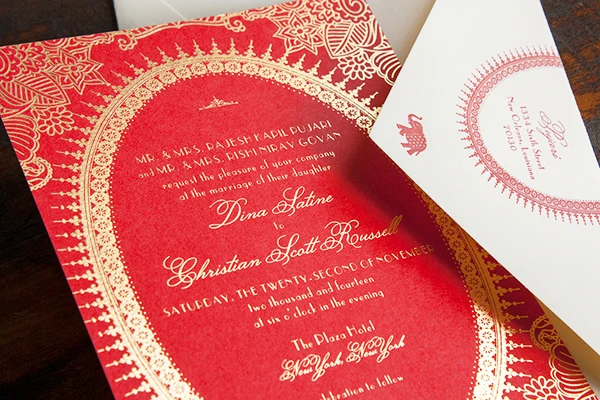 MR. & MRS. RAJESH KAPIL PUJARI
AND MR. & MRS. RISHI NIRAV GOVAN
request the pleasure of your company
at the marriage of their daughter
Dina Satine
to
Christian Scott Russell
SATURDAY, THE TWENTY-SECOND OF NOVEMBER
two thousand and fourteen
at six o'clock in the evening
The Plaza Hotel
New York, New York
Celebration
1334 Sixth Street
New Orleans, Louisiana
70130